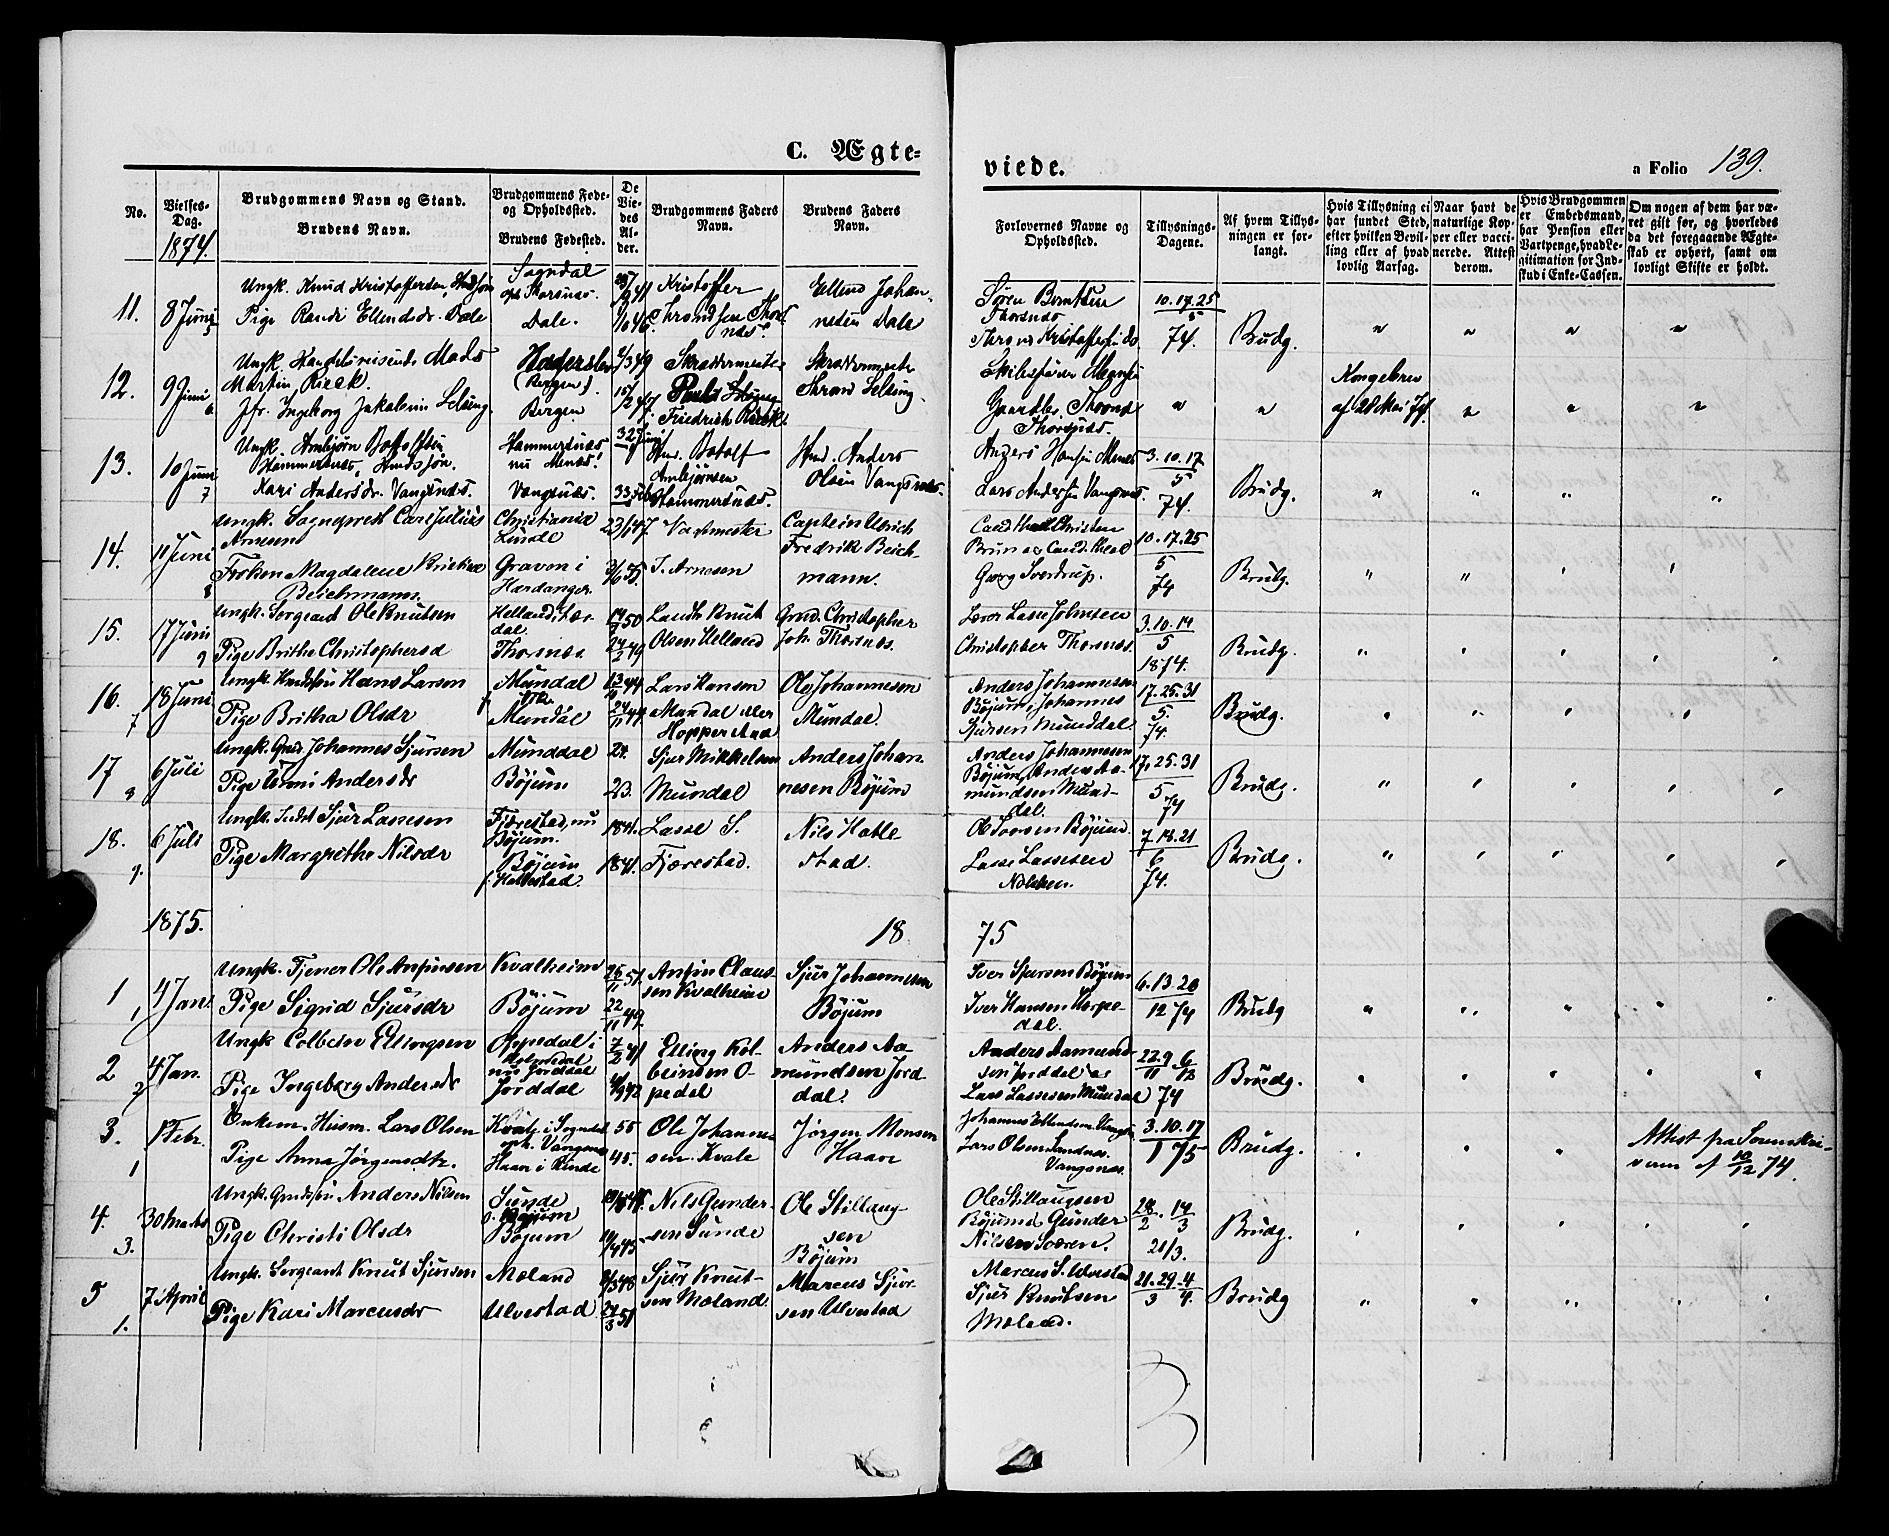 C. Ægte-
viede.
a Folio 139.
No.
Vielses-Dag.
1874.
Brudgommens Navn og Stand.
Brudens Navn.
Brudgommens Føde- og Opholdsted.
Brudens Fødested.
De Viedes Alder.
Brudgommens Faders Navn.
Brudens Faders Navn.
Forlovernes Navne og Opholdsted.
Tillysnings-Dagene.
Af hvem Tillysningen er forlangt.
Hvis Tillysning ei har fundet Sted, efter hvilken Bevilling eller af hvad lovlig Aarsag.
Naar havt de naturlige Kopper eller vaccinerede. Attest derom.
Hvis Brudgommen er Embedsmand, har Pension eller Vartpenge, hvad Legitimation for Indskud i Enke-Cassen.
Om nogen af dem har været gift før, og hvorledes da det foregaaende Ægteskab er ophørt, samt om lovligt Skifte er holdt.
11. 8 Juni
Ungk. Knud Kristoffersen
Pige Randi Ellendsdr. Dale
Sogndal
Dale.
Kristoffer
Throndsen Thorsnæs.
Ellend Johannesen Dale
Søren Berntsen
Thorsnæs
10. 17. 25
5
74.
Brudg.
12. 9 Juni
Ungk. Handelsreisende Mads
Martin Rieck.
Jfr. Ingeborg Jakobine Selseng.
Haderslev
(Bergen).
Bergen
Skræddermester
Friedrich Rieck.
Skræddermester
Selseng.
Thorsnæs.
Kongebrev
af 28 Mai 74.
13. 10 Juni
7
Ungk. Arnbjørn
Hammersnæs
Kari Andersdr. Vangsnæs.
Hammersnæs
nu Menes!
Vangsnæs.
Arnbjørnsen
Hammersnæs.
Anders
Olsen Vangsnæs.
Anders Hansen Menes
Lars Andersen Vangsnæs.
3. 10. 17
5
74.
Brudg.
14. 11 Juni
8
Ungk. Sogneprest Carl Julius
Arnesen
Frøken Magdalene
Beichmann.
Christiania
Lunde
Graven i
Hardanger.
23/1 47
Vagtmester
J. Arnesen
Captein Ulrich
Fredrik Beichmann.
Cand. theol. Christen
Brun og Cand. theol
Georg Sverdrup.
10. 17. 25
5
74
Brudg.
15. 17 Juni
9
Ungk. Sergeant Ole Knutsen
Pige Brithe Christophersd
Helland, Lærdal.
Thorsnæs
Landh. Knut
Olsen Helland
Grd. Christopher
Joh. Thorsnæs.
Lærer Lasse Johnsen
Christopher Thorsnæs.
3. 10. 14
5
1874.
Brudg.
16. 18 Juni
7
Ungk. Hans Larsen
Pige Britha Olsdr
Mundal
Mundal
Lars Hansen
Mundal eller
Hopperstad
Ole Johannesen
Mundal.
Anders Johannesen
Bøjum, Johannes
Sjursen Munddal.
17. 25. 31
5.
74.
Brudg.
17 6 Juli
8
Ungk. Grdr Johannes Sjursen
Pige Anni Andersdr
Munddal
Bøjum
24.
23.
Sjur Mikkelsen
Mundal
Anders Johannesen Bøjum
Anders Johannesen
Bøjum, Anders Aamundsen Munddal.
17. 25. 31
5
74
Brudg.
18. 6 Juli
9.
Ungk. Sjur Lassesen
Pige Margrethe Nilsdr
Fjærestad, nu
Bøjum.
Bøjum
f. Hallestad.
1841.
1841.
Lasse S.
Fjærestad.
Nils Hallestad.
Ole Bøjum.
Lasse Lassesen
7. 13. 21
6
74.
Brudg.
1875.
18 75
1 4 Jan.
1
Ungk. Tjener Ole Anfinsen
Pige Sigrid Sjursdr
Kvalheim
Bøjum
25/11 51.
22/11 49.
Anfin Claussen Kvalheim
Sjur Johannesen
Bøjum
Iver Sjursen Bøjum
Iver Hansen
6. 13. 20
12 74
Brudg
2 4 Jan.
2
Ungk. Colbein Ellingsen
Pige Ingeborg Andersdr
Oppedal i
nu Jorddal
Jorddal
Elling Kolbeinsen Opedal
Anders Aamundsen Jorddal.
Anders Aamundsen Jorddal og
Lars Lassesen Mundal
22. 9/11 6/12
74
Brudg.
3. 1 Febr.
1
Enkem. Husm. Lars Olsen
Pige Anna Jørgensdtr.
Kvale i Sogndal
Haave i Rinde
55
45.
Ole Johannesen. Kvale
Jørgen Monsen
Haave
Johannes Ellendsen
Lars Olsen
Vangsnæs.
3. 10. 17
1 75
Brudg.
Attest fra Sorenskriveren af 10/12 74.
4. 30 Marts
3.
Ungk. Anders Nilsen
Pige Christi Olsdr
Sunde
Bøjum
Nils Gundersen Sunde
Ole Stillaugsen
Bøjum
Ole Stillaugsen
Bøjum Gunder
Nilsen Sværen.
28/2. 14/3
21/3.
Brudg.
5 7 April
1.
Ungk. Sergeant Knut Sjursen
Pige Kari Marcusdr
Moland
Ulvestad
24/3 51
Sjur Knutsen Moland.
Marcus Sjursen Ulvestad
Marcus S. Ulvestad
Sjur Knutsen
Moland.
21. 29/3 4/4.
Brudg